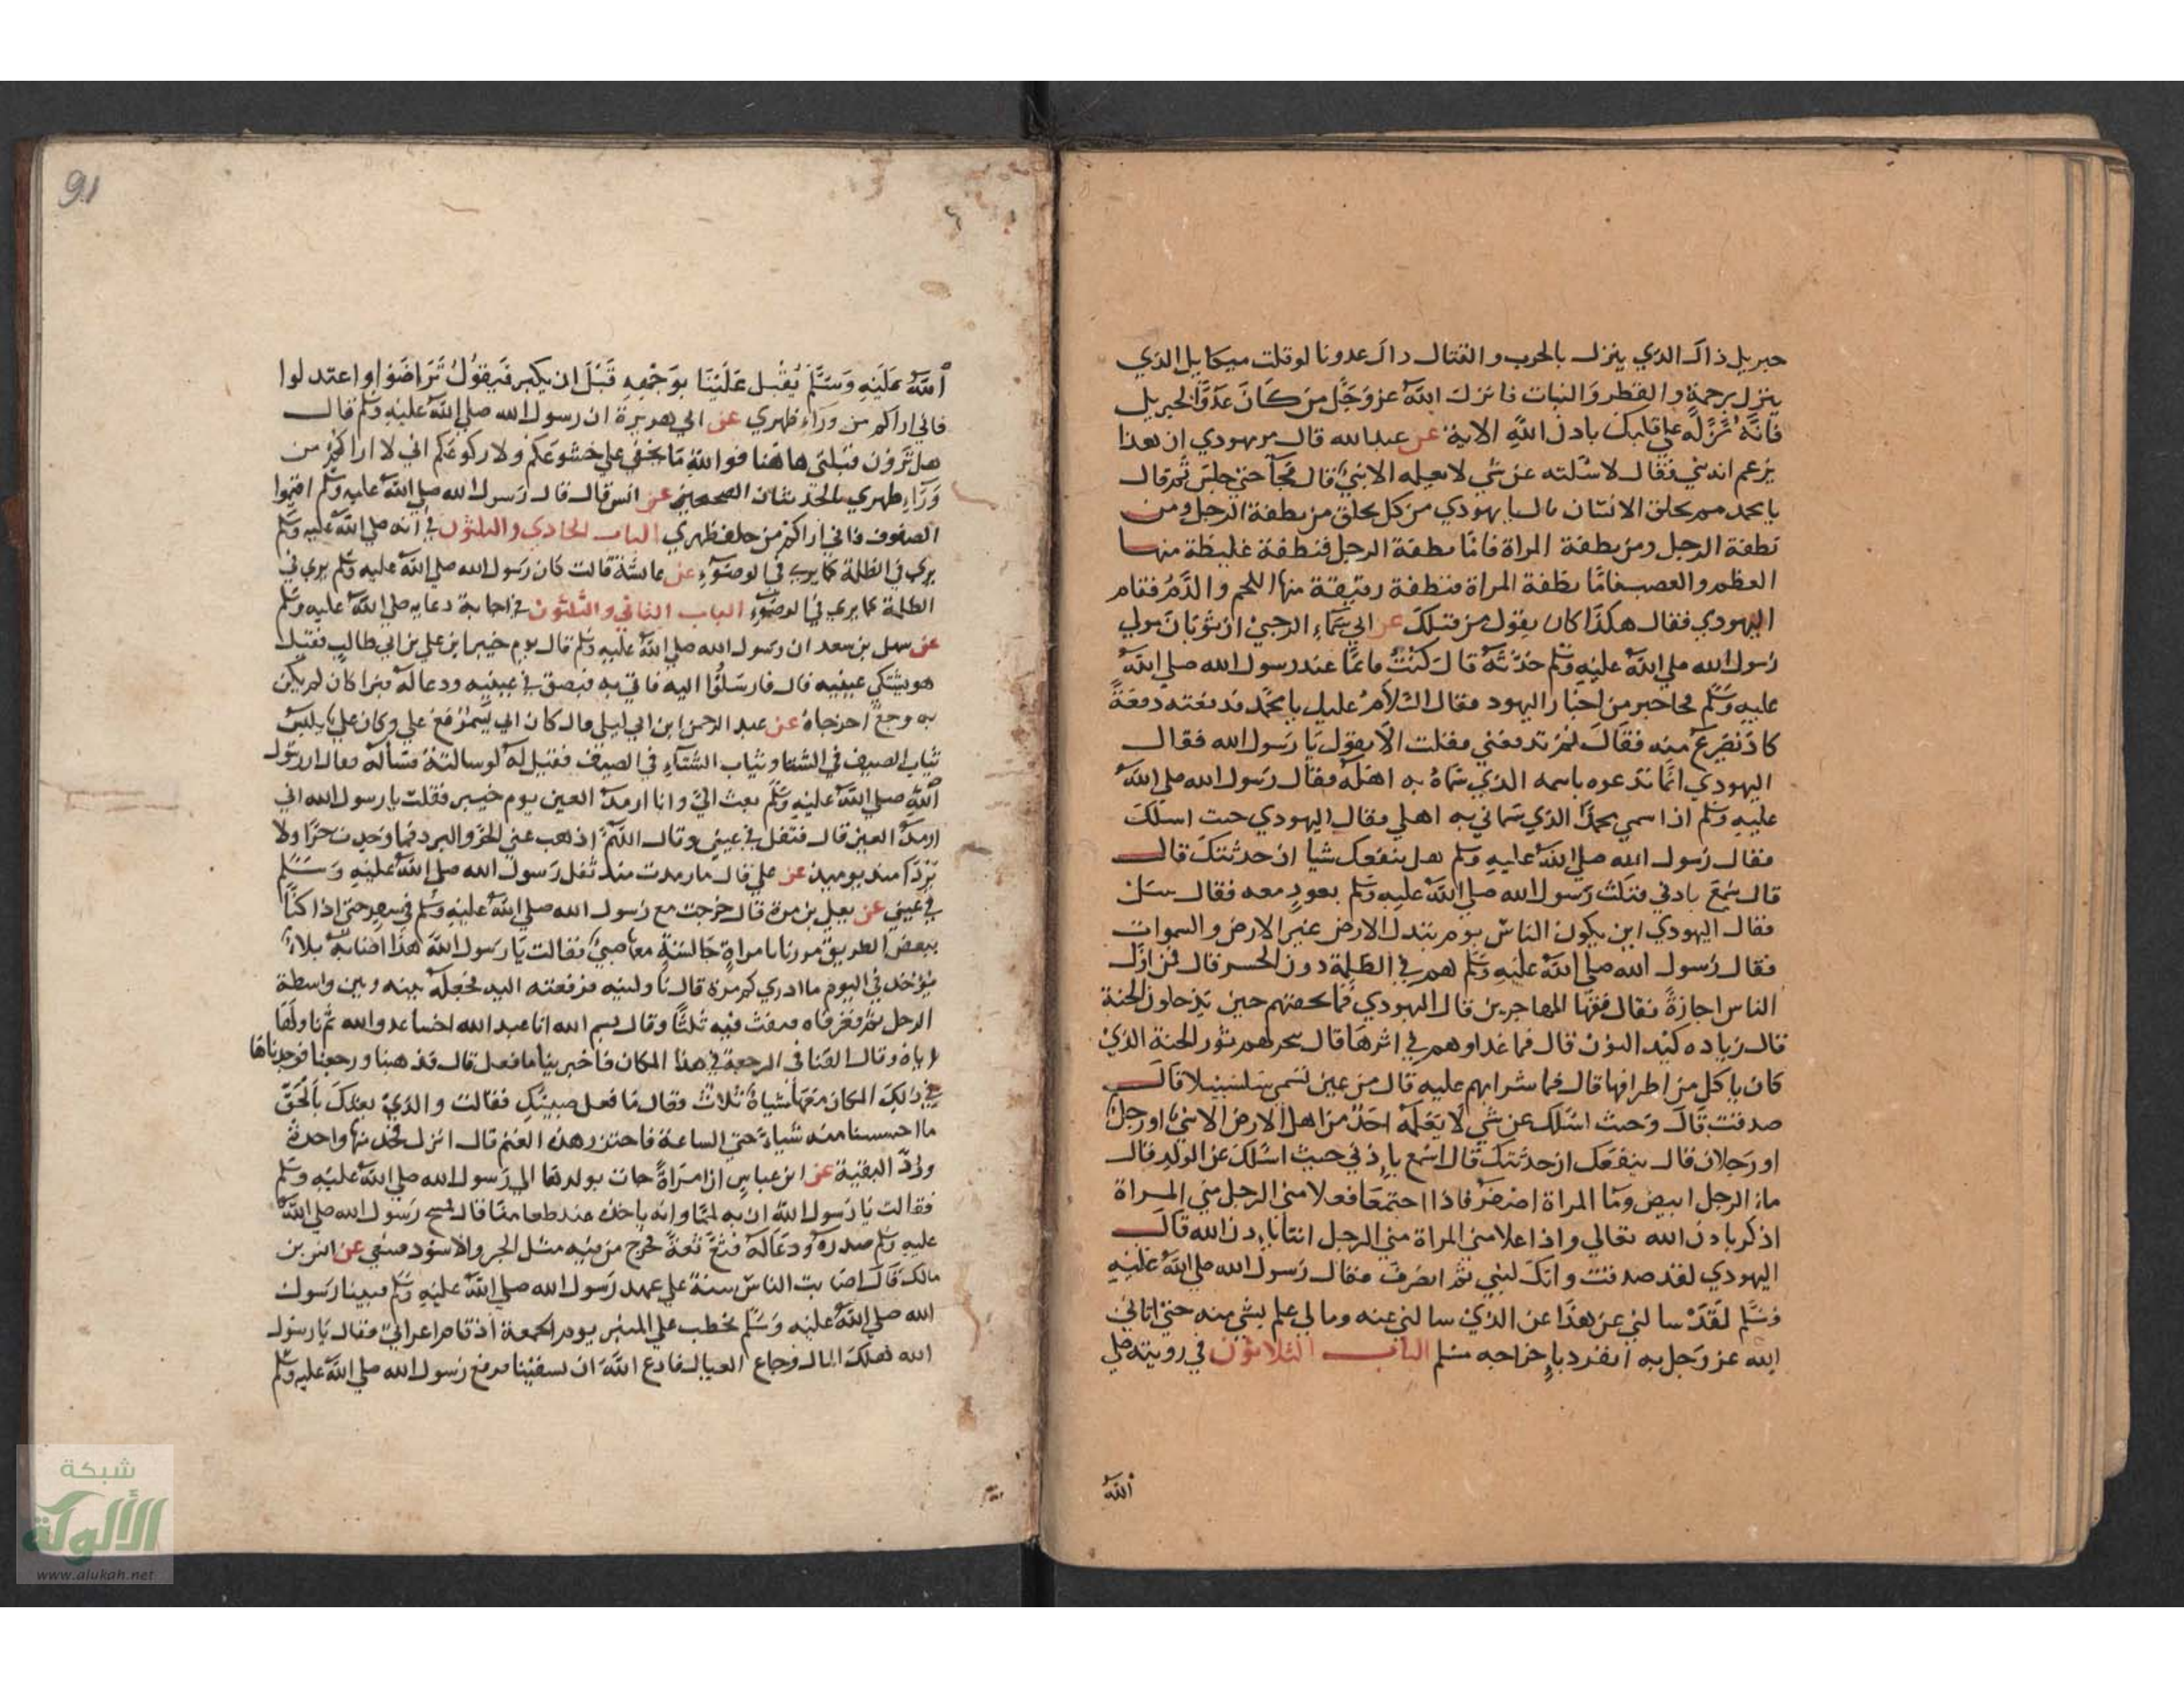 جبريل ذاك الذي ينزل بالحرب والقتال ذاك عدونا لو قلت ميكايل الذي
ينزل برحمة والقطر والنبات فانزل الله عز وجل من كان عدوا لجبريل
فانه نزله على قلبك باذن الله الاية عن عبد الله قال مر يهودي ان هذا
يزعم انه نبي فقال لاسئلنه عن شي لا يعلمه الا نبي قال فجآ حتى جلس ثم قال
يا محمد مم يخلق الانسان قال يا يهودي من كل يخلق من نطفة الرجل ومن
نطفة الرجل ومن نطفة المراة فامّا نطفة الرجل فنطفة غليظة منها
العظم والعصب فامّا نطفة المراة فنطفة رقيقة منها اللحم والدم فقام
اليهودي فقال هكذا كان يقول من قبلك عن ابي سماء الرحبي ان ثوبان مولي
رسول الله صلي الله عليه وسلم حدثه قال كنت قائما عند رسول الله صلي الله
عليه وسلم فجا حبر من احبار اليهود فقال السلام عليك يا محمد فدفعته دفعة
كاد يصرع منه فقال لم تدفعني فقلت الا يقول يا رسول الله فقال
اليهودي انما ندعوه باسمه الذي سماه به اهله فقال رسول الله صلي الله
عليه وسلم اذا اسمي محمد الذي سماني به اهلي فقال اليهودي جيت اسلك
فقال رسول الله صلي الله عليه وسلم هل ينفعك شيا ان حدثتك قال
قال سمع باذني فنكث رسول الله صلي الله عليه وسلم بعود معه فقال سل
فقال اليهودي اين يكون الناس يوم تبدل الارض غير الارض والسموات
فقال رسول الله صلي الله عليه وسلم هم في الظلمة دون الجسر قال فمن اول
الناس اجازة فقال فقرا المهاجرين قال اليهودي فما تحفتهم حين يدخلون الجنة
قال زياده كبد النون قال فما غداوهم في اثرها قال ينحر لهم ثور الجنة الذي
كان ياكل من اطرافها قال فما شرابهم عليه قال من عين تسمي سلسبيلا قال
صدقت قال وجيت اسلك عن شي لا يعلمه احد من اهل الارض الا نبي او رجل
او رجلان قال ينفعك ان حدثتك قال اسمع باذني جيت اسلك عن الولد قال
ماء الرجل ابيض وما المراة اصفر فاذا اجتمعا فعلا مني الرجل مني المراة
اذكر باذن الله تعالي واذا علا مني المراة مني الرجل انثا باذن الله قال
اليهودي لقد صدقت وانك لنبي ثم انصرف فقال رسول الله صلي الله عليه
وسلم لقد سالني عن هذا عن الذي سالني عنه وما لي علم بشي منه حتي اتاني
الله عز وجل به انفرد باخراجه مسلم الباب الثلاثون في رويته صلي
الله
91
الله عليه وسلم يقبل علينا بوجهه قبل ان يكبر فيقول تراصوا واعتدلوا
فاني اراكم من ورآء ظهري عن ابي هريرة ان رسول الله صلي الله عليه وسلم قال
هل ترون قبلتي هاهنا فوالله ما يخفي علي خشوعكم ولا ركوعكم اني لا اراكم من
ورآء ظهري الحديثان الصحيحين عن انس قال قال رسول الله صلي الله عليه وسلم اقيموا
الصفوف فاني اراكم من خلف ظهري الباب الحادي والثلثون في انه صلي الله عليه وسلم
يري في الظلمة كما يري في الوضوء عن عائشة قالت كان رسول الله صلي الله عليه وسلم يري في
الظلمة كما يري في الوضوء الباب الثاني والثلثون في اجابة دعايه صلي الله عليه وسلم
عن سهل بن سعد ان رسول الله صلي الله عليه وسلم قال يوم خيبر اين علي بن ابي طالب فقيل
هو يشتكي عينيه قال فارسلوا اليه فاتي به فبصق في عينيه ودعا له فبرا كان لم يكن
به وجع اخرجاه عن عبد الرحمن ابن ابي ليلي قال كان ابي يسمر مع علي وكان علي يلبس
ثياب الصيف في الشتا وثياب الشتآء في الصيف فقيل له لو سالته فسأله فقال ان رسول
الله صلي الله عليه وسلم بعث الي وانا ارمد العين يوم خيبر فقلت يا رسول الله اني
ارمد العين قال فتفل في عيني وقال اللهم اذهب عني الحر والبرد فما وجدت حرا ولا
بردا منذ يوميذ عن علي قال ما رمدت منذ تفل رسول الله صلي الله عليه وسلم
في عيني عن يعلي بن مرة قال خرجت مع رسول الله صلي الله عليه وسلم في سفر حتي اذا كنا
ببعض الطريق مررنا بامراة جالسة معها صبي فقالت يا رسول الله هذا اصابه بلاء
يؤخذ في اليوم ما ادري كم مرة قال ناولينيه فرفعته اليه فجعله بينه وبين واسطة
الرحل ثم فغر فاه فنفث فيه ثلثا وقال بسم الله انا عبد الله اخسا عدو الله ثم ناولها
اياه وقال القنا في الرجعة في هذا المكان فاخبرينا ما فعل قال فذهبنا ورجعنا فوجدناها
في ذلك المكان معها شياه ثلاث فقال ما فعل صبيك فقالت والذي بعثك بالحق
ما احسسنا منه شيا حتي الساعة فاجتزر هذه الغنم قال انزل فخذ منها واحدة
ورد البقية عن ابن عباس ان امراة جات بولدها الي رسول الله صلي الله عليه وسلم
فقالت يا رسول الله ان به لمما وانه ياخذه عند طعامنا قال فمسح رسول الله صلي الله
عليه وسلم صدره ودعا له فثع ثعة فخرج من فيه مثل الجرو الاسود فشفي عن انس بن
مالك قال اصابت الناس سنة علي عهد رسول الله صلي الله عليه وسلم فبينا رسول
الله صلي الله عليه وسلم يخطب علي المنبر يوم الجمعة اذ قام اعرابي فقال يا رسول
الله هلك المال وجاع العيال فادع الله ان يسقينا فرفع رسول الله صلي الله عليه وسلم
شبكة
الألوكة
www.alukah.net